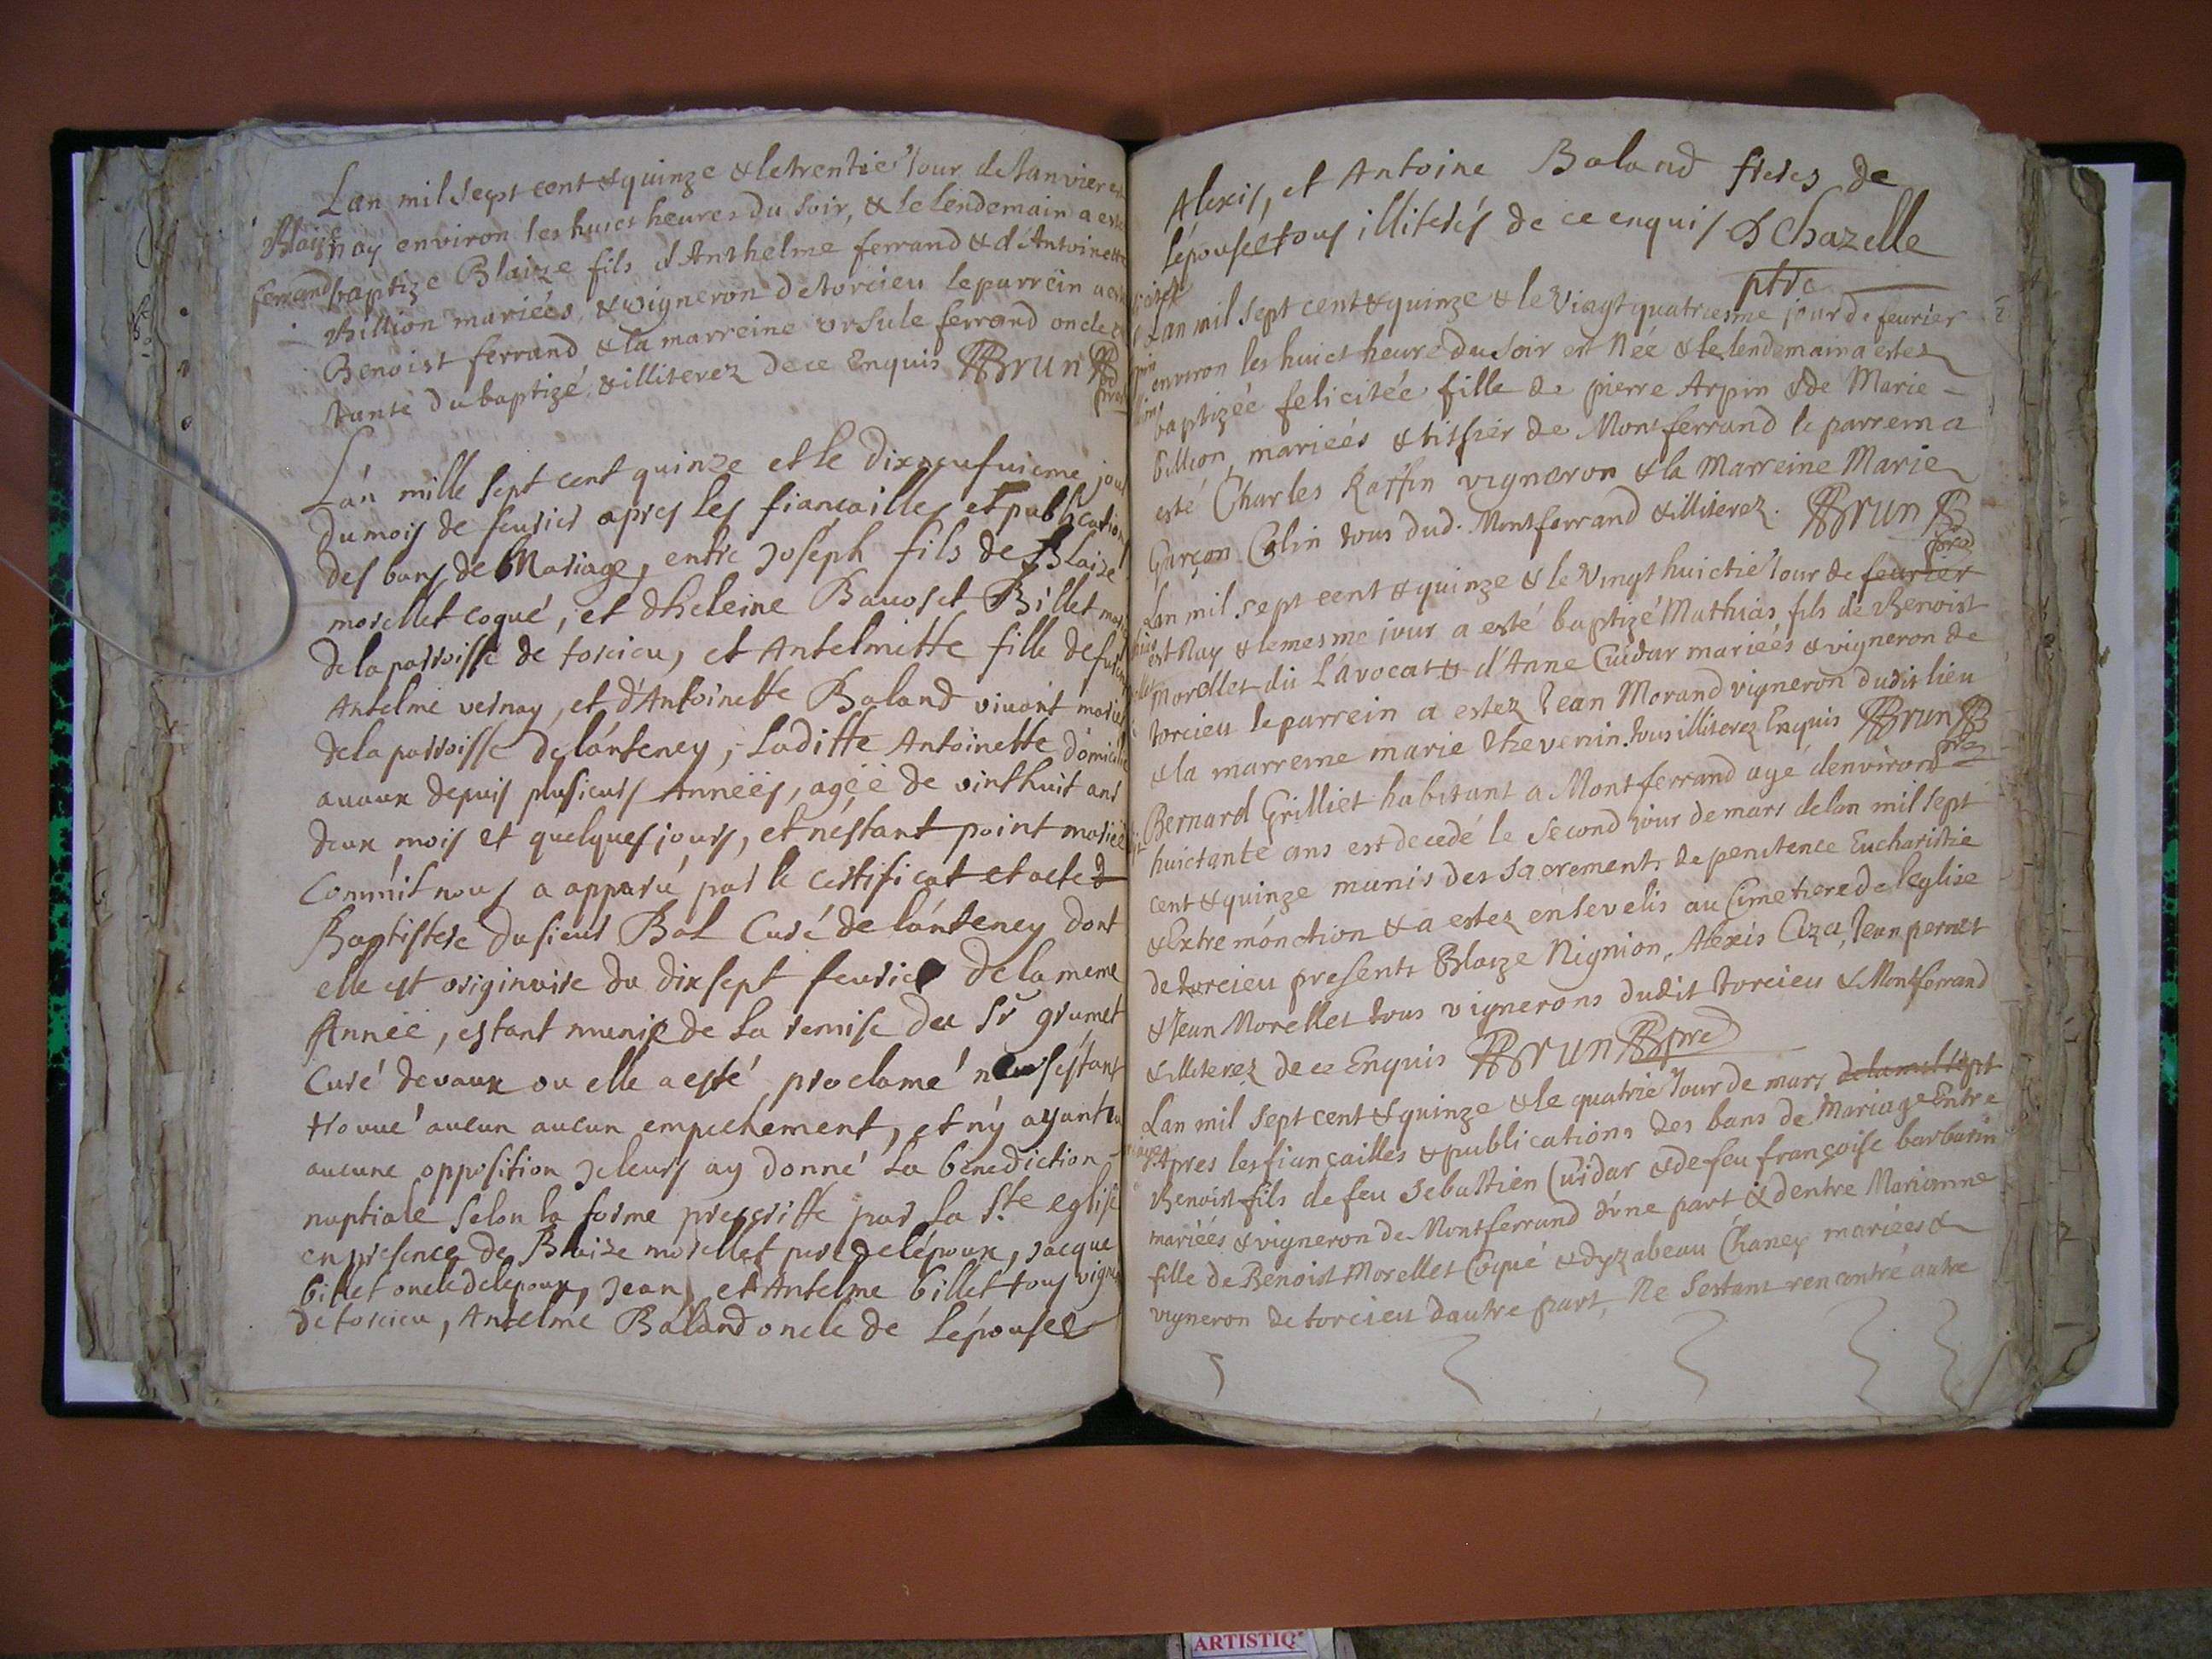 Lan mil sept cent & quinze & le trentie' iour de Ianvier est
Blaize nay environ les huict heures du soir, & le lendemain a esté
ferrand baptizé Blaize fils d'Anthelme ferrand & d'Antoinette
Billion mariées, & vigneron de torcieu le parrein a esté
Benoist ferrand & la marreine ursule ferrand oncle &
tante du baptizé, & illiterez de ce Enquis BBrun
pre
L'an mille sept cent quinze et le dixneufuieme jour
du mois de feurier apres les fiançailles et publication
des bans de Mariage, entre Joseph fils de Blaize
morellet coqué, et dheleine Billet
de la parroisse de torcieu, et Antelmette fille de
Antelme vernay, et d'Antoinette Baland vivant mariés
de la parroisse de lánteney, Laditte Antoinette domicilié
avaux depuis plusieurs Années, agéé de vinthuit ans
deux mois et quelques jours, et néstant point mariéé
Comm'il nous a apparu par le certificat et acte d
Baptistere du sieur Bal Curé de lánteney dont
elle est originaire du dixsept feurier de la meme
Année, estant munie de la remise du Sr grumet
Curé devaux ou elle a esté proclamé ne sestant
trouué aucun aucun empechement, et ny ayant eu
aucune opposition Je leurs ay donné la benediction
nuptiale selon la forme prescritte par la Ste eglise
en presence de Blaize morellet pere de lépoux, Jacque
billet oncle de lepoux, Jean et Antelme billet tous
de torcieu, Antelme Baland oncle de Lépousee
Alexis, et Antoine Baland freres de
Lépousee tous illiterés de ce enquis Chazelle
ptre
Lan mil sept cent & quinze & le Vingt quatriesme jour de feurier
environ les huict heure du soir est Née & le lendemain a estez
baptizéé felicitée fille de pierre Arpin & de Marie
billion, mariéés & tissier de Montferrand le parrein a
esté Charles Raffin vigneron & la Marreine Marie
Garçon Colin tous dud. Montferrand & illiterez. BBrun
pre
Lan mil sept cent & quinze & le Vingt huictie' iour de feurier
est Nay & le mesme jour a esté baptizé Mathias fils de Benoist
Morellet dit L'avocat & d'Anne Cuidar mariéés & vigneron de
torcieu le parrein a estez Jean Morand vigneron dudit lieu
& la marreine marie thevenin tous illiterez Enquis BBrun
pre
Bernard Grilliet habitant a Montferrand agé denviron
huictante ans est decedé le second iour de mars de lan mil sept
cent & quinze munis des sacrements de penitence Eucharistie
& Extremónction & a estez ensevelis au Cimetiere de leglise
de torcieu presents Blaize Nignion, Alexis Coza, Jean pernet
& Jean Morellet tous vignerons dudit torcieu & Montferrand
& illiterez de ce Enquis BBrun pre
Lan mil sept cent & quinze & le quatrie' iour de mars de lan mil sept
Apres les fiançailles & publications des bans de Mariage Entre
Benoist fils de feu Sebastien Cuidar & de feu françoise barbarin
mariéés & vigneron de Montferrand d'vne part & dentre Marianne
fille de Benoist Morellet Coqué & dyzabeau Chaney mariéés &
vigneron de torcieu dautre part, Ne Sestant rencontré autre
ARTISTIQ